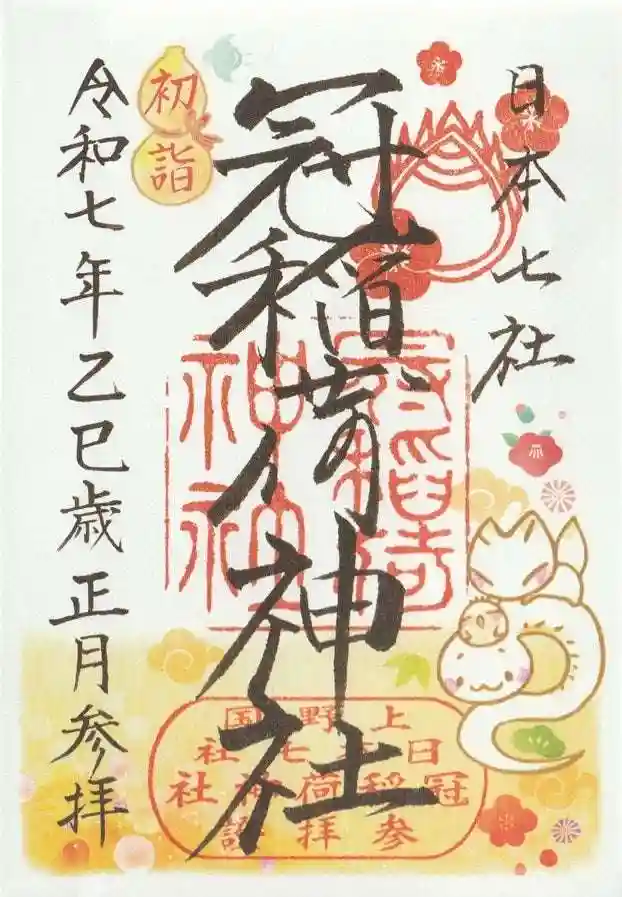 日本七社
冠稲荷神社
初詣
令和七年乙巳歳正月参拝
冠稲荷
神社
上野国
日本七社
冠稲荷神社
参拝記